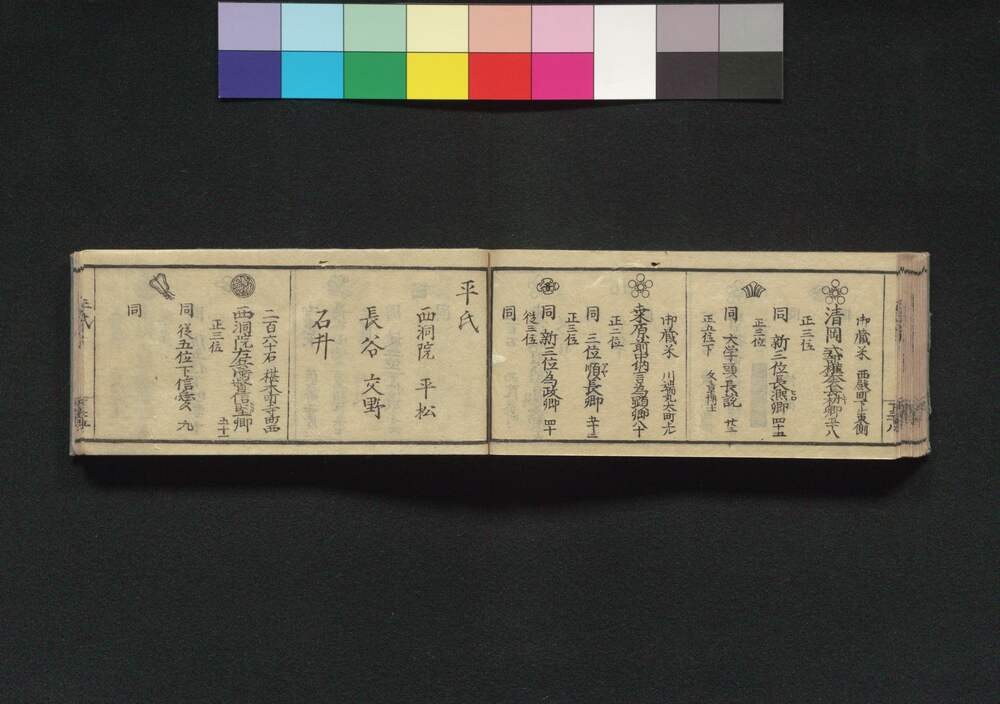 御蔵米 西殿町上東側
清岡式部権大輔長親卿五十八
正三位
同 新三位長凞卿四十五
正三位
同 大学頭長説 廿三
正五位下 文章博士
御蔵米 川端丸太町上ル
桒原前中納言為顕卿八十
正二位
同 三位順長卿
正三位
同 新三位為政卿 四十
従三位
同
平氏
西洞院 平松
長谷 交野
石井
二百六十石
西洞院左兵衛督信堅卿
正三位
同 従五位下信愛 九
同